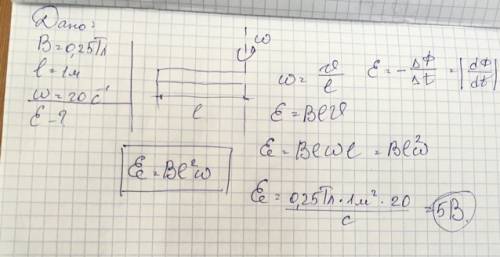 Дано:
B = 0,25Тл
l = 1м
ω = 20 с⁻¹
ℰ - ?
ω
l
ω = ϑ/l
ℰ = -ΔΦ/Δt = |dΦ/dt|
ℰ = Blϑ
ℰ = Blωl = Bl²ω
ℰ = Bl²ω
ℰ = 0,25Тл · 1м² · 20 / с = 5В.